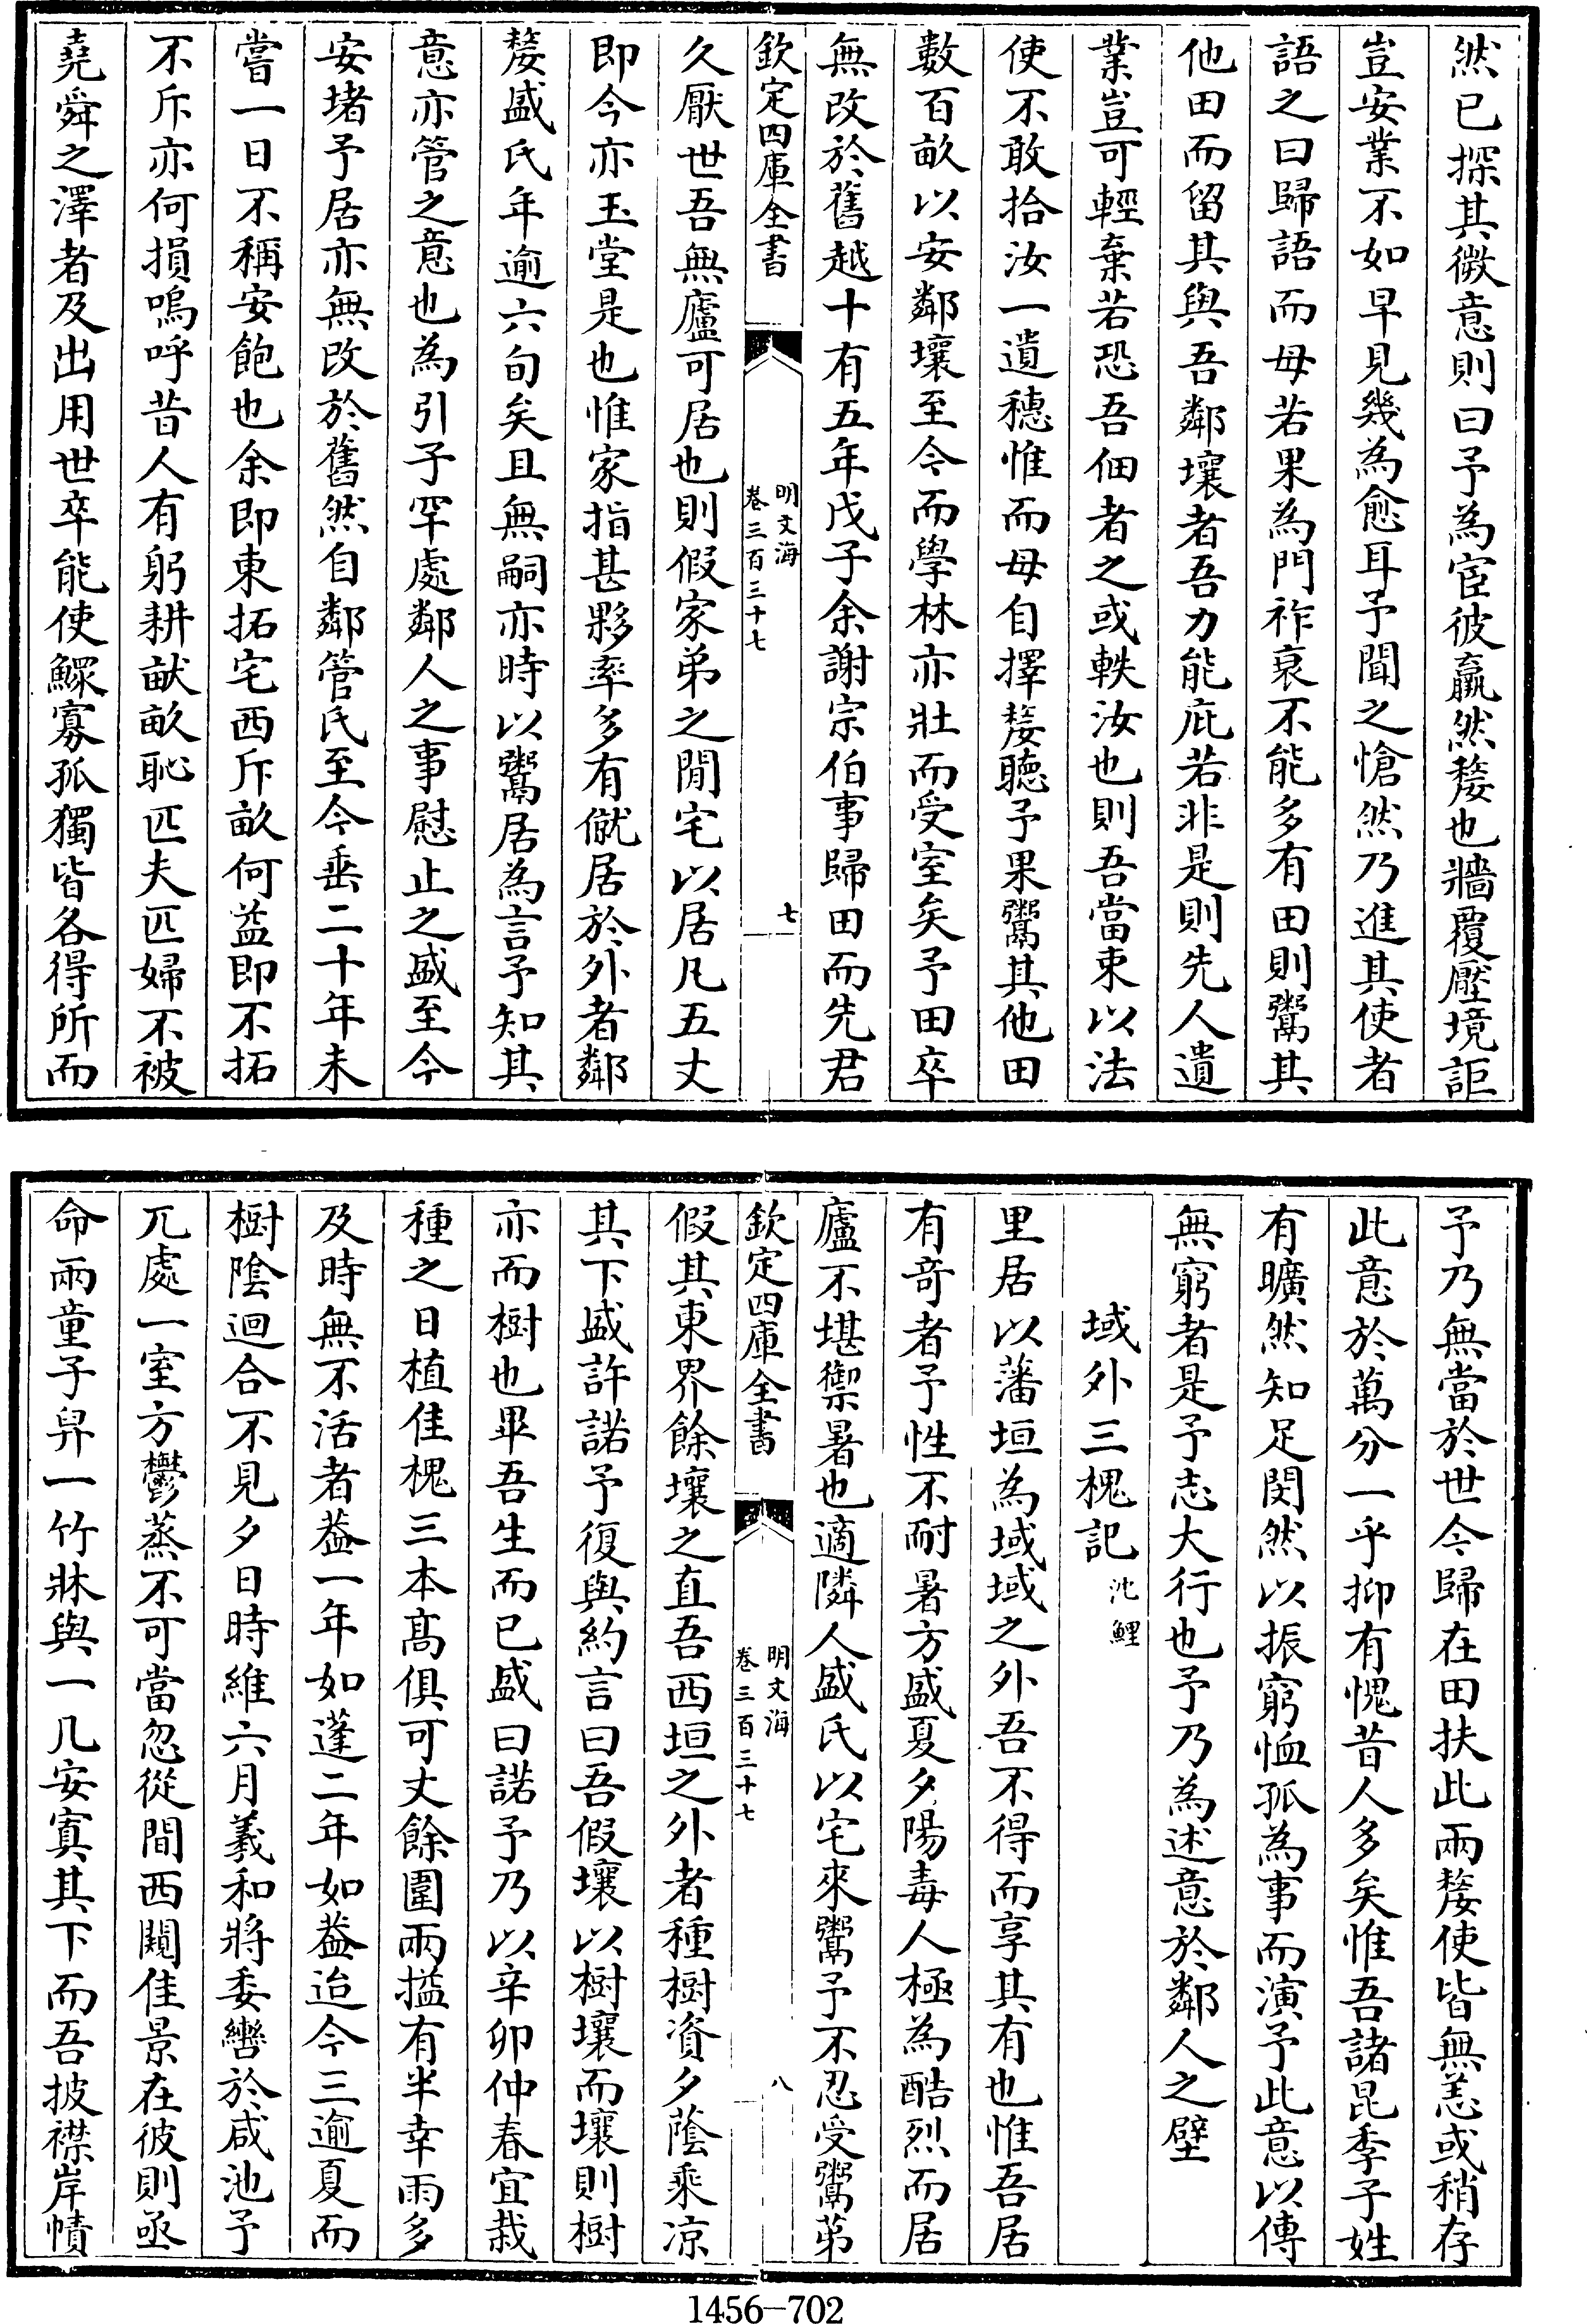 然已探其微意則曰予為宦彼羸然嫠也牆覆壓境詎
豈安業不如早見幾為愈耳予聞之愴然乃進其使者
語之曰歸語而母若果為門祚衰不能多有田則鬻其
他田而留其與吾鄰壤者吾力能庇若非是則先人遺
業豈可輕棄若恐吾佃者之或軼汝也則吾當束以法
使不敢拾汝一遺穗惟而母自擇嫠聽予果鬻其他田
數百畝以安鄰壤至今而學林亦壯而受室矣予田卒
無改於舊越十有五年戊子余謝宗伯事歸田而先君
欽定四庫全書
明文海
卷三百三十七
七
久厭世吾無廬可居也則假家弟之閒宅以居凡五丈
即今亦玉堂是也惟家指甚夥率多有僦居於外者鄰
嫠盛氏年逾六旬矣且無嗣亦時以鬻居為言予知其
意亦管之意也為引子罕處鄰人之事慰止之盛至今
安堵予居亦無改於舊然自鄰管氏至今垂二十年未
嘗一日不稱安飽也余即東拓宅西斥畝何益即不拓
不斥亦何損嗚呼昔人有躬耕畎畝恥匹夫匹婦不被
堯舜之澤者及出用世卒能使鰥寡孤獨皆各得所而
予乃無當於世今歸在田扶此兩嫠使皆無恙或稍存
此意於萬分一乎抑有愧昔人多矣惟吾諸昆季子姓
有曠然知足閔然以振窮恤孤為事而演予此意以傳
無窮者是予志大行也予乃為述意於鄰人之壁
域外三槐記沈鯉
里居以藩垣為域域之外吾不得而享其有也惟吾居
有奇者予性不耐暑方盛夏夕陽毒人極為酷烈而居
廬不堪禦暑也適隣人盛氏以宅來鬻予不忍受鬻第
欽定四庫全書
明文海
卷三百三十七
八
假其東界餘壤之直吾西垣之外者種樹資夕蔭乘凉
其下盛許諾予復與約言曰吾假壤以樹壤而壤則樹
亦而樹也畢吾生而已盛曰諾予乃以辛卯仲春宜栽
種之日植佳槐三本高俱可丈餘圍兩搤有半幸雨多
及時無不活者葢一年如蓬二年如葢迨今三逾夏而
樹陰迴合不見夕日時維六月羲和將委轡於咸池予
兀處一室方鬱蒸不可當忽從間西闚佳景在彼則亟
命兩童子舁一竹牀與一几安寘其下而吾披襟岸幘
1456-702